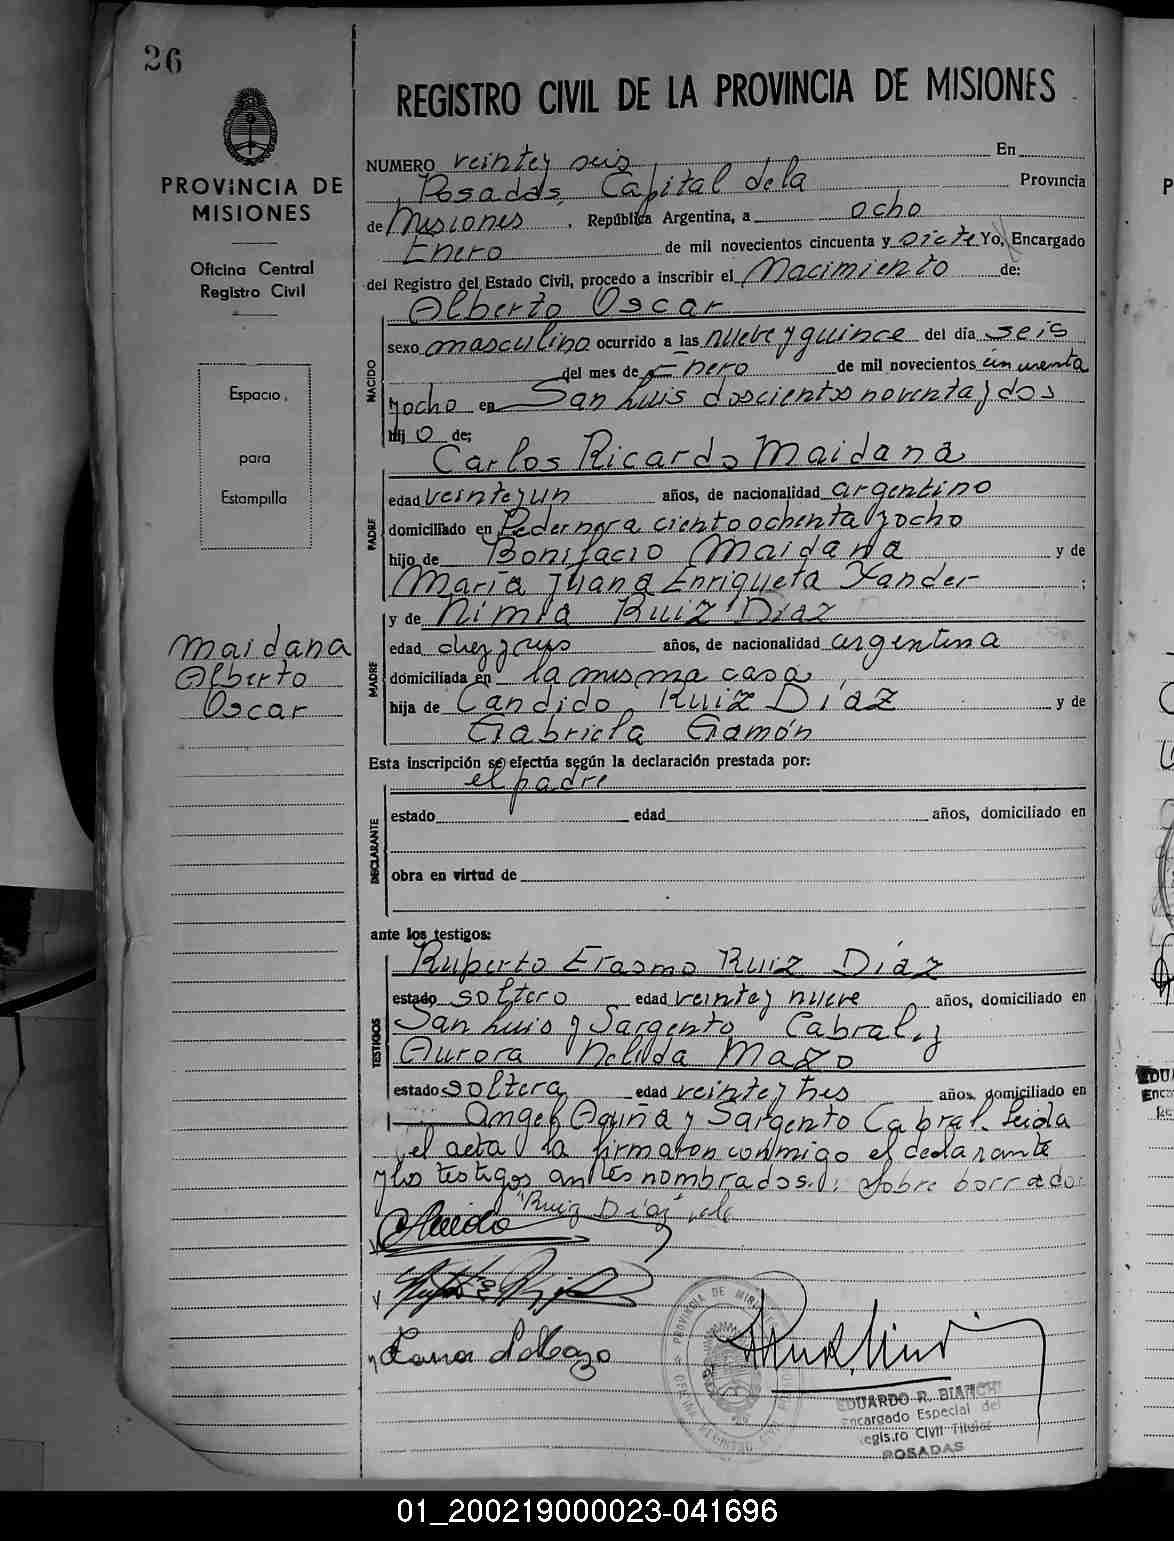 26
PROVINCIA DE
MISIONES
Oficina Central
Registro Civil
Espacio
para
Estampilla
Maidana
Alberto
Oscar
REGISTRO CIVIL DE LA PROVINCIA DE MISIONES
NUMERO veintey seis En
Posadas, Capital dela Provincia
de Misiones, República Argentina, a ocho
Enero de mil novecientos cincuenta y siete Yo, Encargado
del Registro del Estado Civil, procedo a inscribir el Nacimiento de:
Alberto Oscar
NACIDO
sexo masculino ocurrido a las nueve y quince del día seis
del mes de Enero de mil novecientos cincuenta
yocho en San Luis doscientos noventa y dos
hij o de:
Carlos Ricardo Maidana
PADRE
edad veinteyun años, de nacionalidad argentino
domiciliado en Pedernera ciento ochenta y ocho
hijo de Bonifacio Maidana y de
María Juana Enriqueta Xander ;
MADRE
y de Nimia Ruiz Díaz
edad años, de nacionalidad argentina
domiciliada en la misma casa
hija de Candido Ruiz Díaz y de
Gabriela Gamón
Esta inscripción se efectúa según la declaración prestada por:
el padre
DECLARANTE
estado edad años, domiciliado en
obra en virtud de
ante los testigos:
TESTIGOS
Ruperto Erasmo Ruiz Díaz
estado soltero edad veintey nueve años, domiciliado en
San Luis y Sargento Cabral, y
Aurora Nelida Mazo
estado soltera edad veinte y tres años, domiciliado en
Angel Acuña y Sargento Cabral. Leida
el acta la firmaron conmigo el declarante
y los testigos antes nombrados. Sobre borrado:
"Ruiz Díaz" vale
PROVINCIA DE MISIONES
EDUARDO R. BIANCHI
Encargado Especial del
Registro Civil Titular
POSADAS
01_200219000023-041696